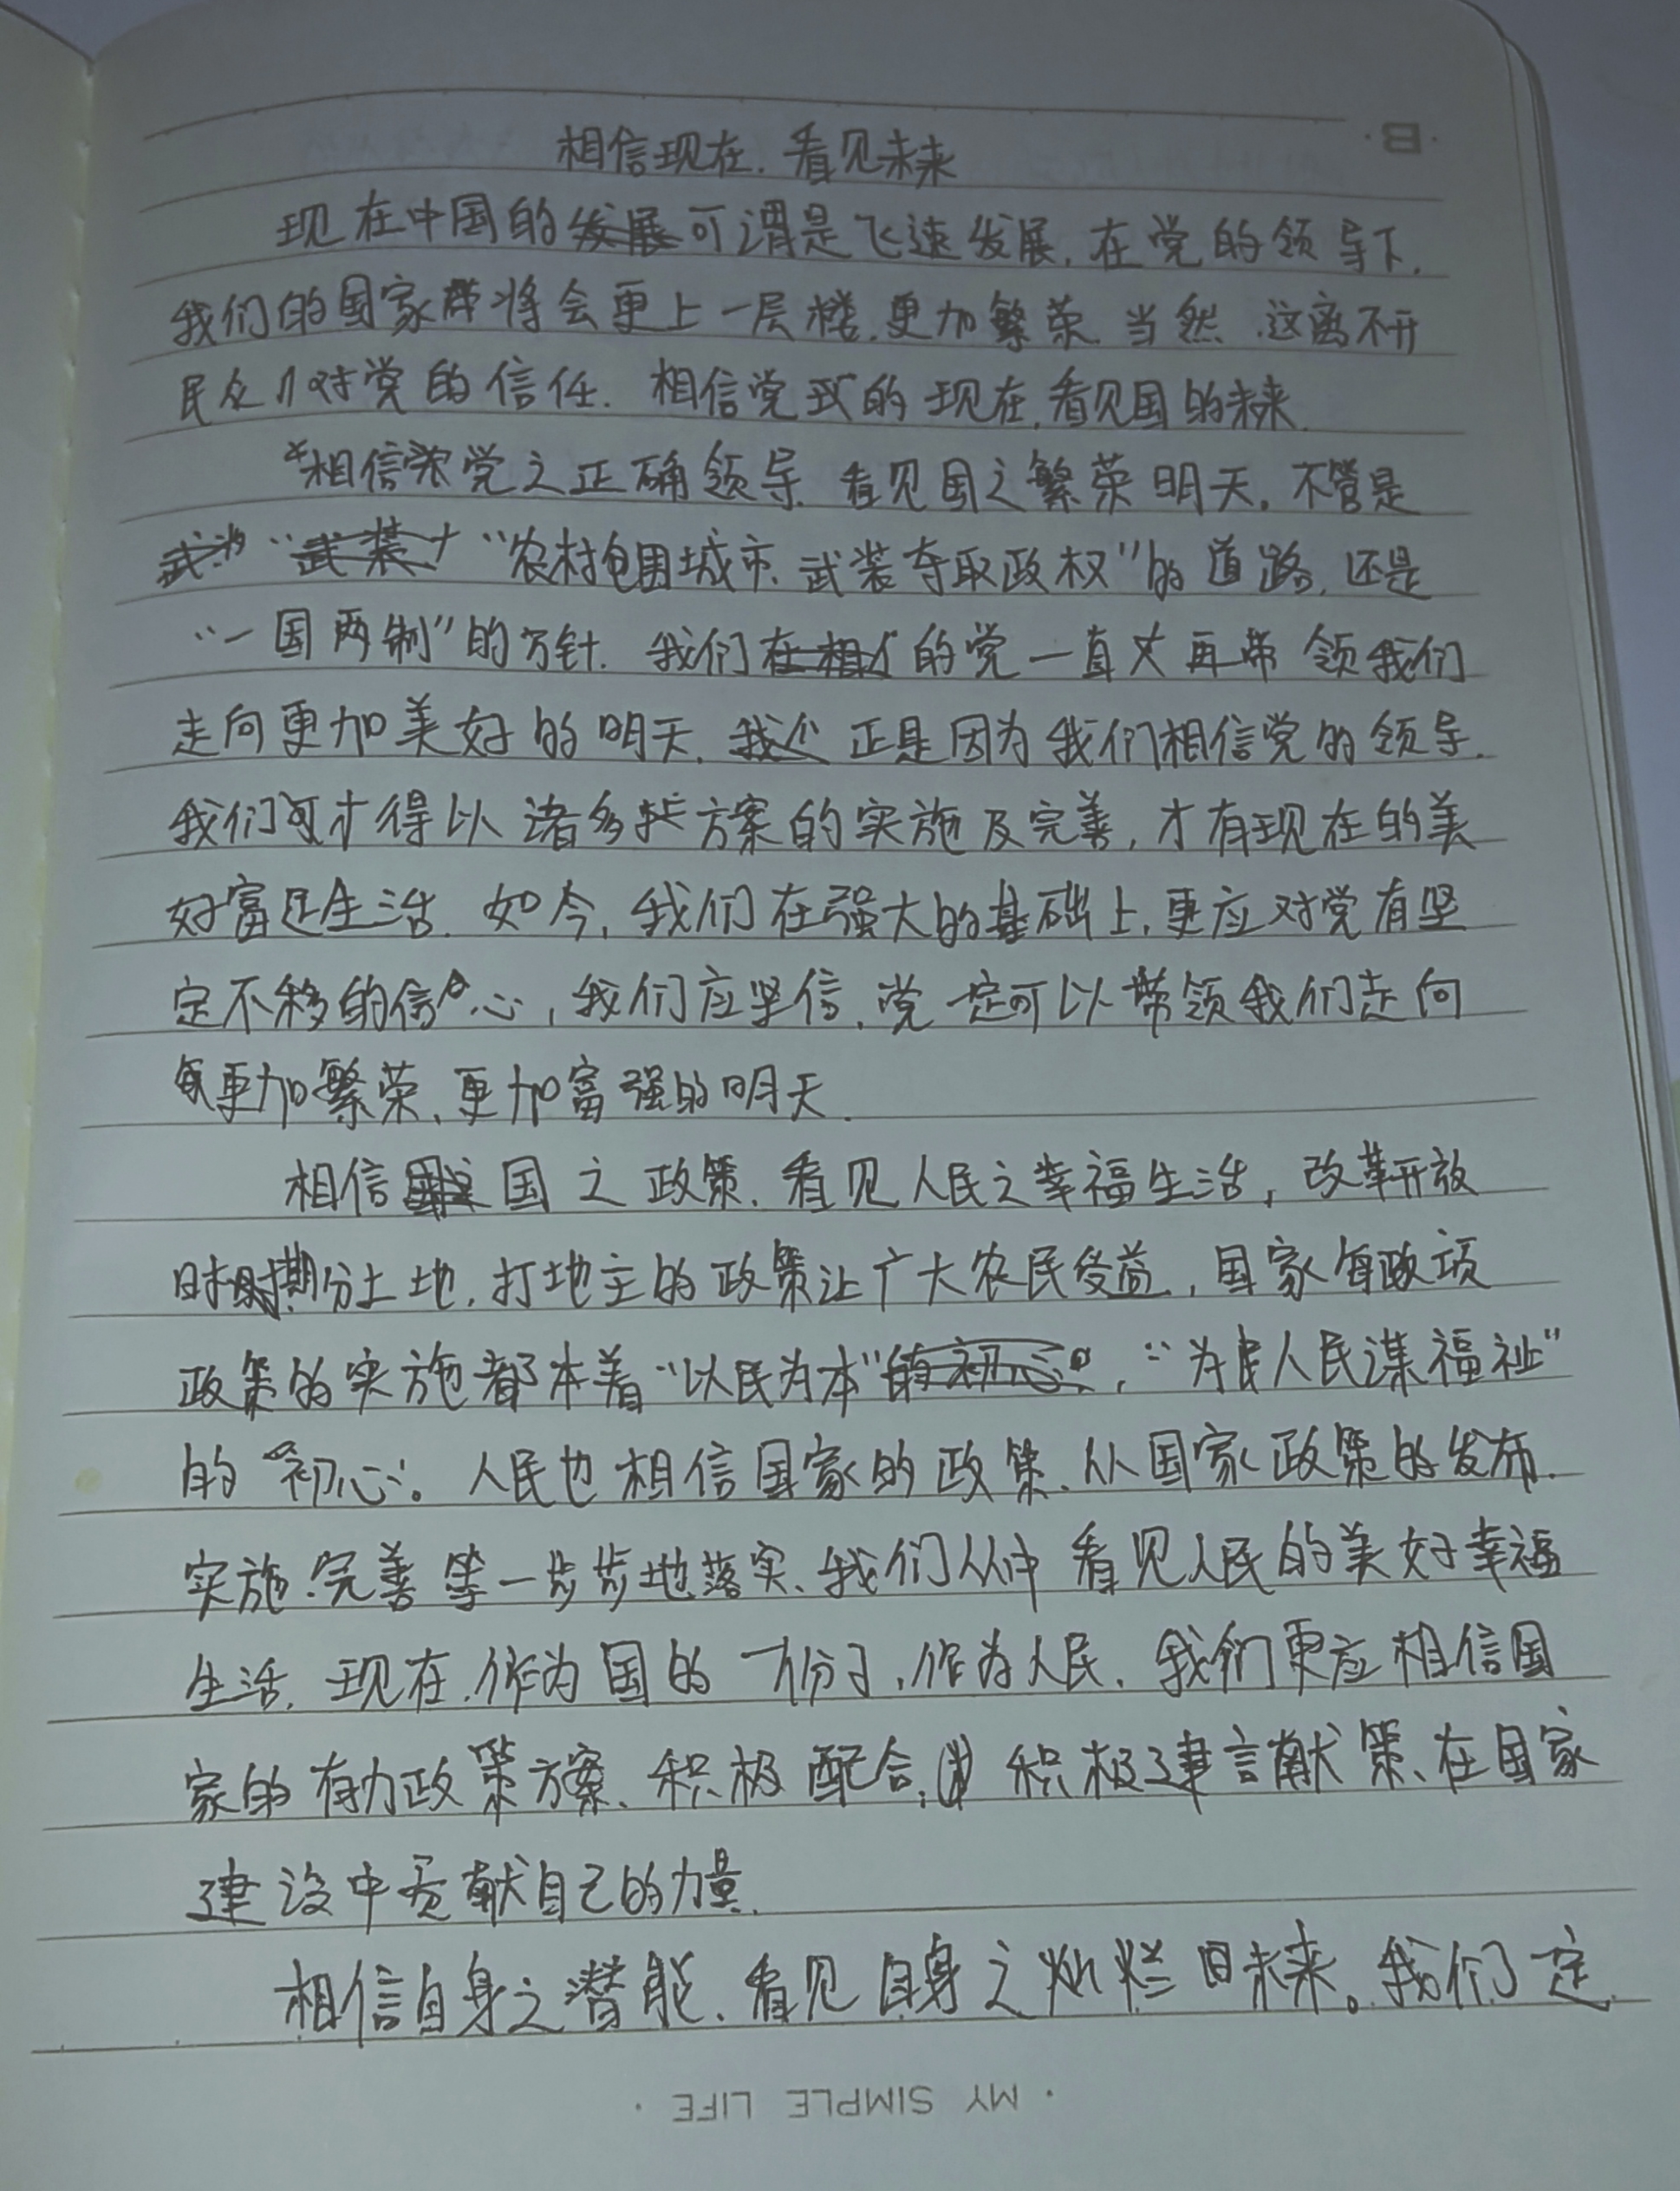 B
相信现在，看见未来
现在中国的可谓是飞速发展，在党的领导下，
我们的国家将会更上一层楼，更加繁荣，当然，这离不开
民众们对党的信任，相信党的现在，看见国的未来。
相信党之正确领导，看见国之繁荣明天。不管是
“农村包围城市、武装夺取政权”的道路，还是
“一国两制”的方针，我们的党一直再带领我们
走向更加美好的明天，正是因为我们相信党的领导，
我们才得以诸多方案的实施及完善，才有现在的美
好富足生活。如今，我们在强大的基础上，更应对党有坚
定不移的信心，我们应坚信，党一定可以带领我们走向
更加繁荣、更加富强的明天。
相信国之政策，看见人民之幸福生活，改革开放
时期分土地，打地主的政策让广大农民受益，国家每项
政策的实施都本着“以民为本”，“为人民谋福祉”
的“初心”。人民也相信国家的政策、从国家政策的发布、
实施、完善等一步步地落实、我们从中看见人民的美好幸福
生活，现在，作为国的一份子，作为人民，我们更应相信国
家的有力政策方案、积极配合，积极建言献策、在国家
建设中贡献自己的力量。
相信自身之潜能、看见自身之灿烂未来。我们一定
· MY SIMPLE LIFE ·